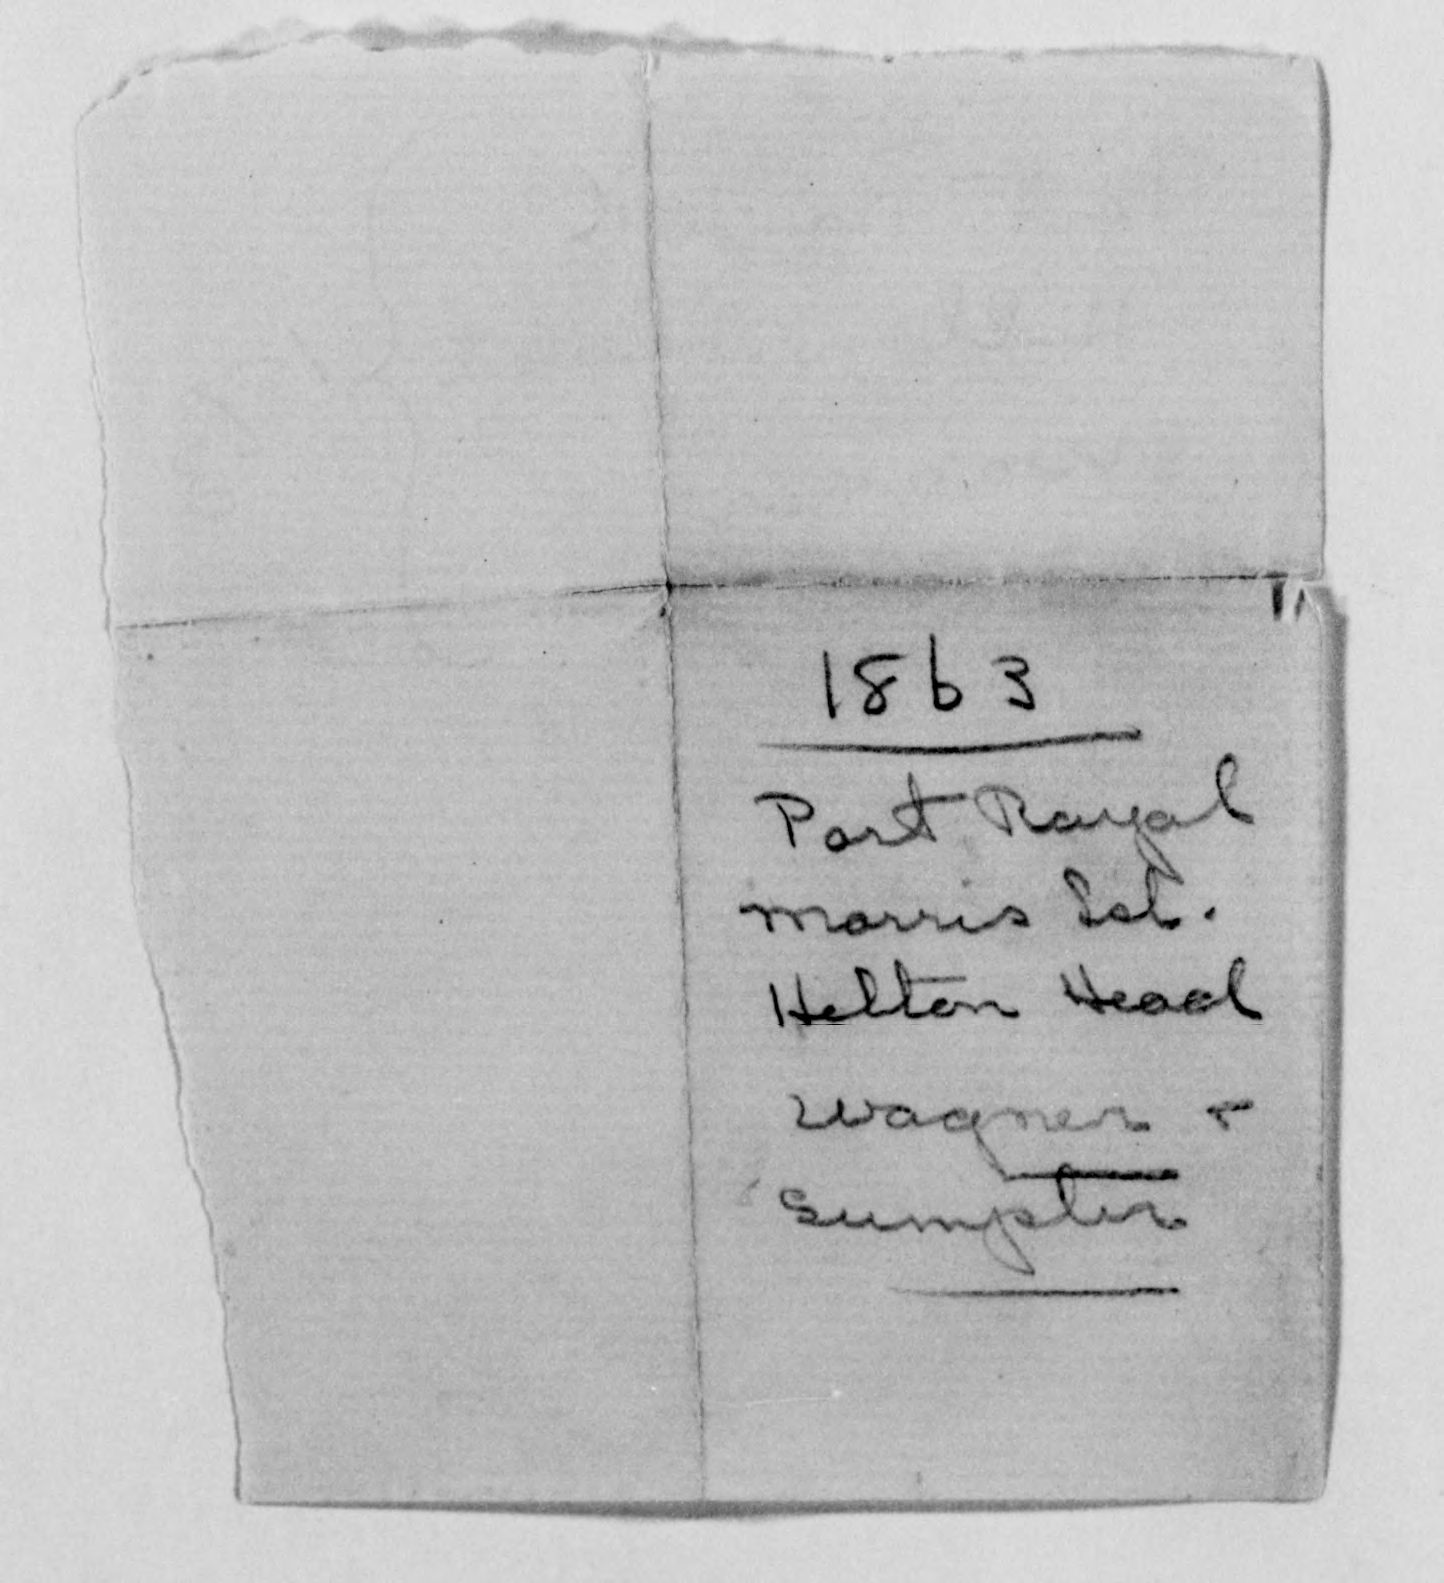 1863
Port Royal
Morris Isl.
Hilton Head
Wagner &
Sumpter